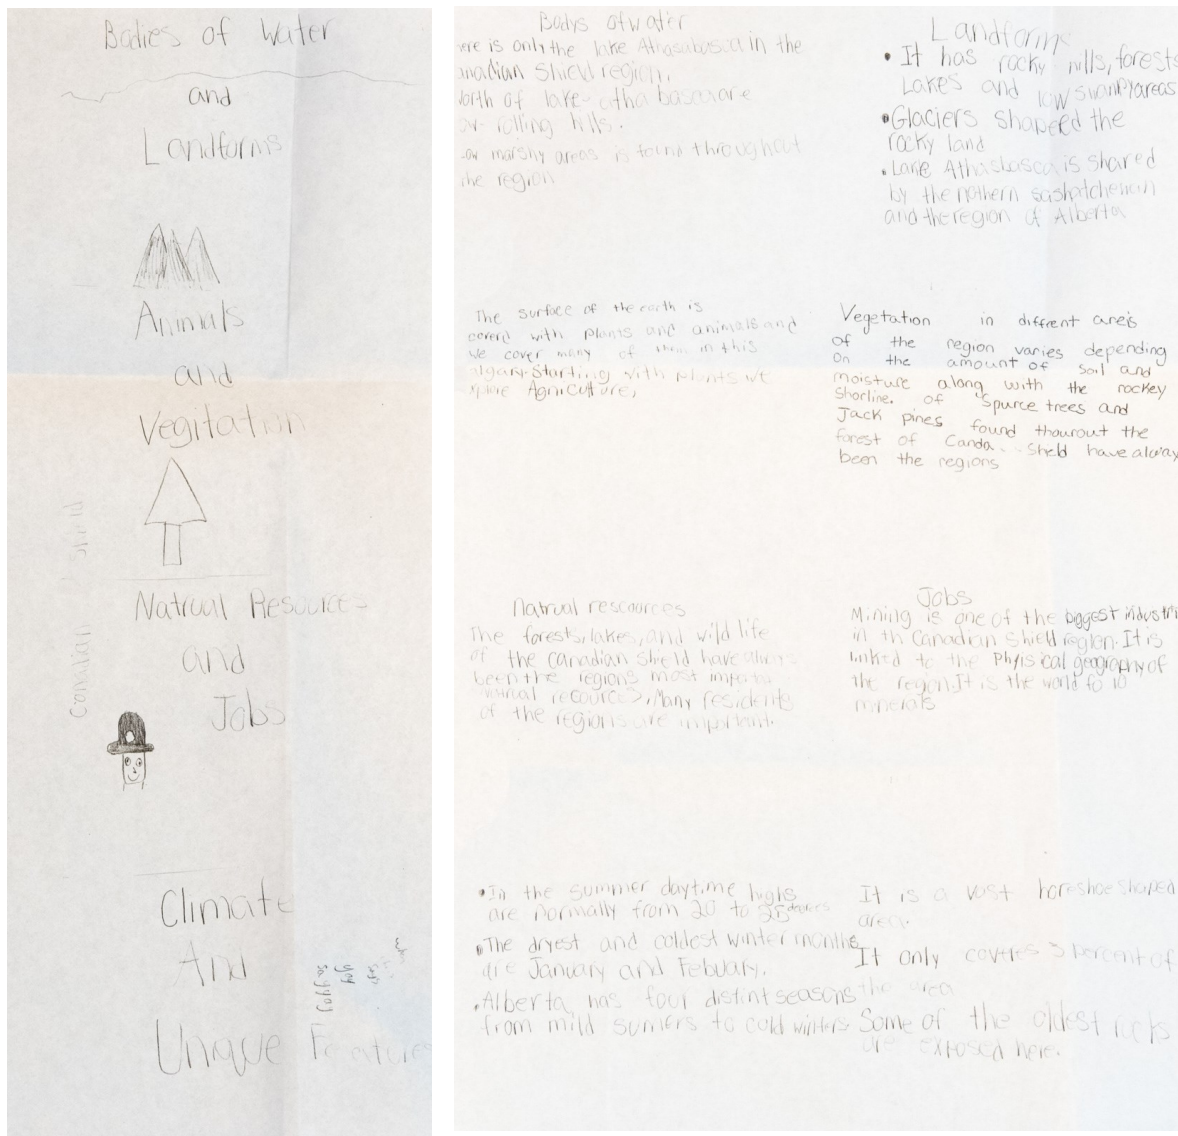 Bodies of Water
and
Landforms
Animals
and
Vegitation
Canadian Shild
Natrual Resources
and
Jobs
Climate
And
Unique Features
Bodys of water
ere is only the lake Athasabasca in the
anadian Shield region.
orth of lake atha basca are
ow rolling hills.
ow marshy areas is found throughout
he region
Landforms
• It has rocky hills, forests
Lakes and low swampy areas
• Glaciers shaped the
rocky land
• Lake Athasbasca is shared
by the nothern saskatchewan
and the region of Alberta
The surface of the earth is
coverd with plants and animals and
we cover many of them in this
algary. Starting with plants we
xplore Agriculture,
Vegetation in diffrent areis
of the region varies depending
on the amount of soil and
moisture along with the rockey
Shorline. of Spurce trees and
Jack pines found thourout the
forest of Canda. Sheld have alway
been the regions
Natrual rescources
The forests, lakes, and wild life
of the canadian shield have always
been the regions most importa
natural recources, Many residents
of the regions are important.
Jobs
Mining is one of the biggest industri
in th Canadian Shield region. It is
linked to the Phyisical geography of
the region. It is the world to 10
minerals
• In the summer daytime highs
are normally from 20 to 25 degrees
• The dryest and coldest winter months
are January and Febuary.
• Alberta has four distint seasons
from mild sumers to cold winters
It is a vast horeshoe shaped
area.
It only covers 3 percent of
the area
Some of the oldest rocks
are exposed here.